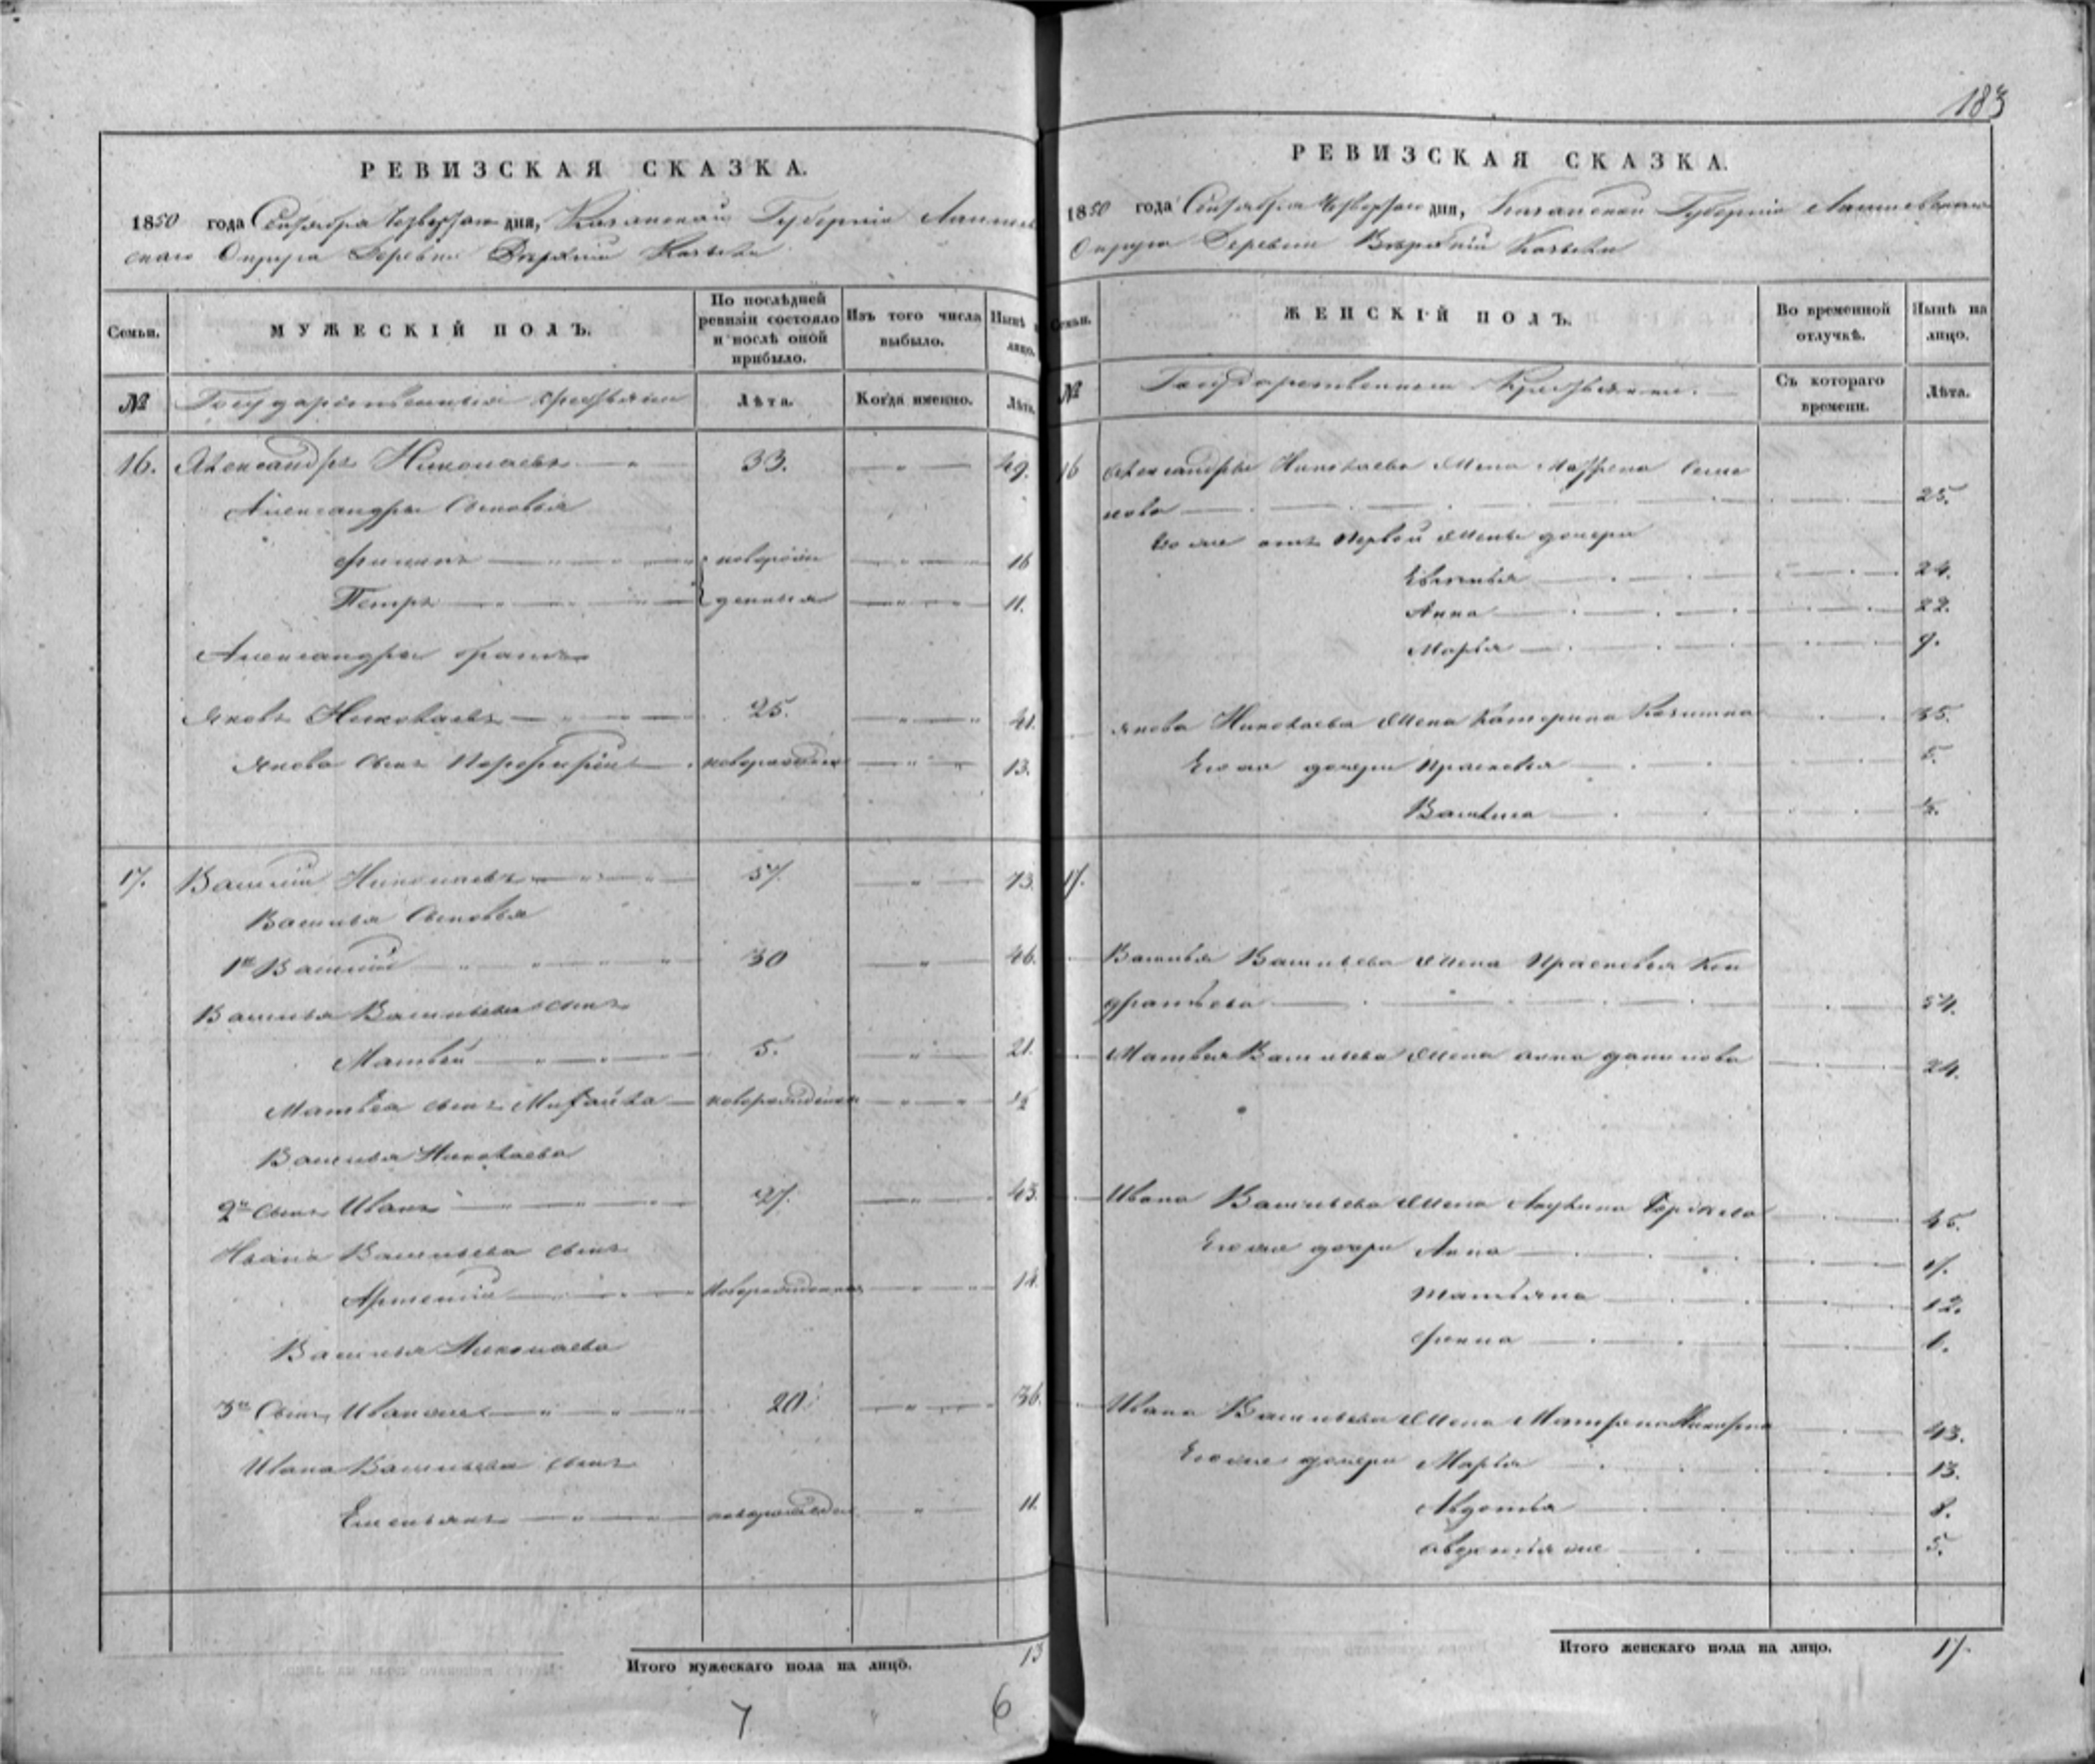 183
РЕВИЗСКАЯ СКАЗКА.
1850 года Сентября Четвертаго дня, Казанской Губерніи Лаишев
скаго Округа Деревни Верхній
Семьи.
МУЖЕСКІЙ ПОЛЪ.
По послѣдней ревизіи состояло и послѣ оной прибыло.
Изъ того числа выбыло.
Нынѣ лицо.
№
Государственныя крестьяне
Лѣта.
Когда именно.
Лѣта.
16. Александръ Николаевъ 33. 49.
Александра Сыновья
Филипъ новорож 16
Петръ денныя 11.
Александра братъ
Яковъ Николаевъ 25. 41.
Якова сынъ Порфирій новорожден 13.
17. Василій Николаевъ 57. 73.
Василья Сыновья
1й Василій 30 46.
Василья Васильева сынъ
Матвѣй 5. 21.
Матвѣя сынъ новорожденной ½
Василья Николаева
2й сынъ Иванъ 27. 43.
Ивана Васильева сынъ
Артемій новорожденной
Василья Николаева
3й Сынъ Иванъ же 20. 36.
Ивана Васильева сынъ
Емельянъ новорожден 11.
Итого мужескаго пола на лицо. 13
7 6
РЕВИЗСКАЯ СКАЗКА.
1850 года Сентября Четвертаго дня, Казанской Губерніи Лаишевскаго
Округа Деревни Верхній
Семьи.
ЖЕНСКІЙ ПОЛЪ.
Во временной отлучкѣ.
Нынѣ на лицо.
№
Государственныя Крестьянки.
Съ котораго времени.
Лѣта.
16 Александра Николаева жена Матрена Семе
нова 25.
Его же отъ первой жены дочери
24.
Анна 22.
Марья 9.
Якова Николаева жена Катерина 35.
Его же дочери Прасковья 5.
Василиса ½.
17.
Василья Васильева жена Прасковья Кон
дратьева 54.
Матвѣя Васильева жена Анна Данилова 24.
Ивана Васильева жена Акулина 45.
Его же дочери Анна
Татьяна 12.
Фекла 1.
Ивана Васильева жена Матрена 43.
Его же дочери Марья 13.
Авдотья 8.
Авдотья же 5.
Итого женскаго пола на лицо. 17.